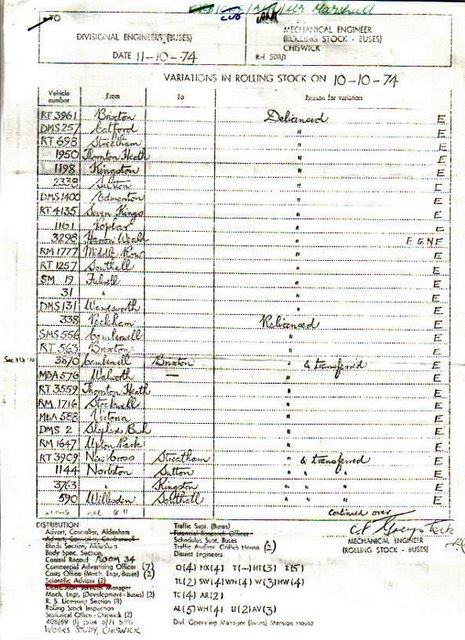 TO
Marshall
DIVISIONAL ENGINEERS (BUSES)
DATE 11-10-74
MECHANICAL ENGINEER
(ROLLING STOCK - BUSES)
CHISWICK
VARIATIONS IN ROLLING STOCK ON 10-10-74
Vehicle number From To Reason for variation
RT 3961 Brixton Delicenced E
DMS 257 Catford " E
RT 698 Streatham " E
1950 Thornton Heath " E
1198 Kingston " E
2339 Sutton " E
DMS 1400 Edmonton " E
RT 4135 Seven Kings " E
1101 Poplar " E
3298 Harrow Weald "
RM 1777 Middle Row " E
RT 1257 Southall " E
SM 19 Fulwell " E
31 " " E
DMS 131 Wandsworth " E
338 Peckham Relicenced E
SMS 556 Camberwell " E
RT 563 Brixton " E
3870 Camberwell Brixton " & transferred E
MBA 576 Walworth — " E
RT 3559 Thornton Heath " E
RM 1716 Stockwell " E
MBA 588 Victoria " E
DMS 2 Shepherds Bush " E
RM 1647 Upton Park " E
RT 3909 New Cross Streatham " & transferred E
1144 Norbiton Sutton " " " E
3763 " Kingston " " " E
590 Willesden Southall " " " E
Continued over
DISTRIBUTION
Advert. Controller, Aldenham
Body Spec. Section,
Commercial Advertising Officer (7)
Costs Officer (Mech. Engr. Buses) (2)
Scientific Adviser (2)
Mech. Engr. (Development - Buses) (2)
R. S. Licensing Section (8)
Rolling Stock Inspection
Statistical Office - Chiswick (2)
WORKS STUDY, CHISWICK
Traffic Supt. (Buses)
Financial Research Officer
Schedules Supt. Buses
Traffic Auditor, Griffith House (2)
District Engineers
MECHANICAL ENGINEER
(ROLLING STOCK - BUSES)
Q(4) NX(4) T(-) HT(3) R(5)
TL(2) SW(4) WN(4) W(3) HW(4)
TC(4) AR(2)
AL(5) WH(4) U(2) AV(3)
Divl. Operating Manager (Buses) Mansion House